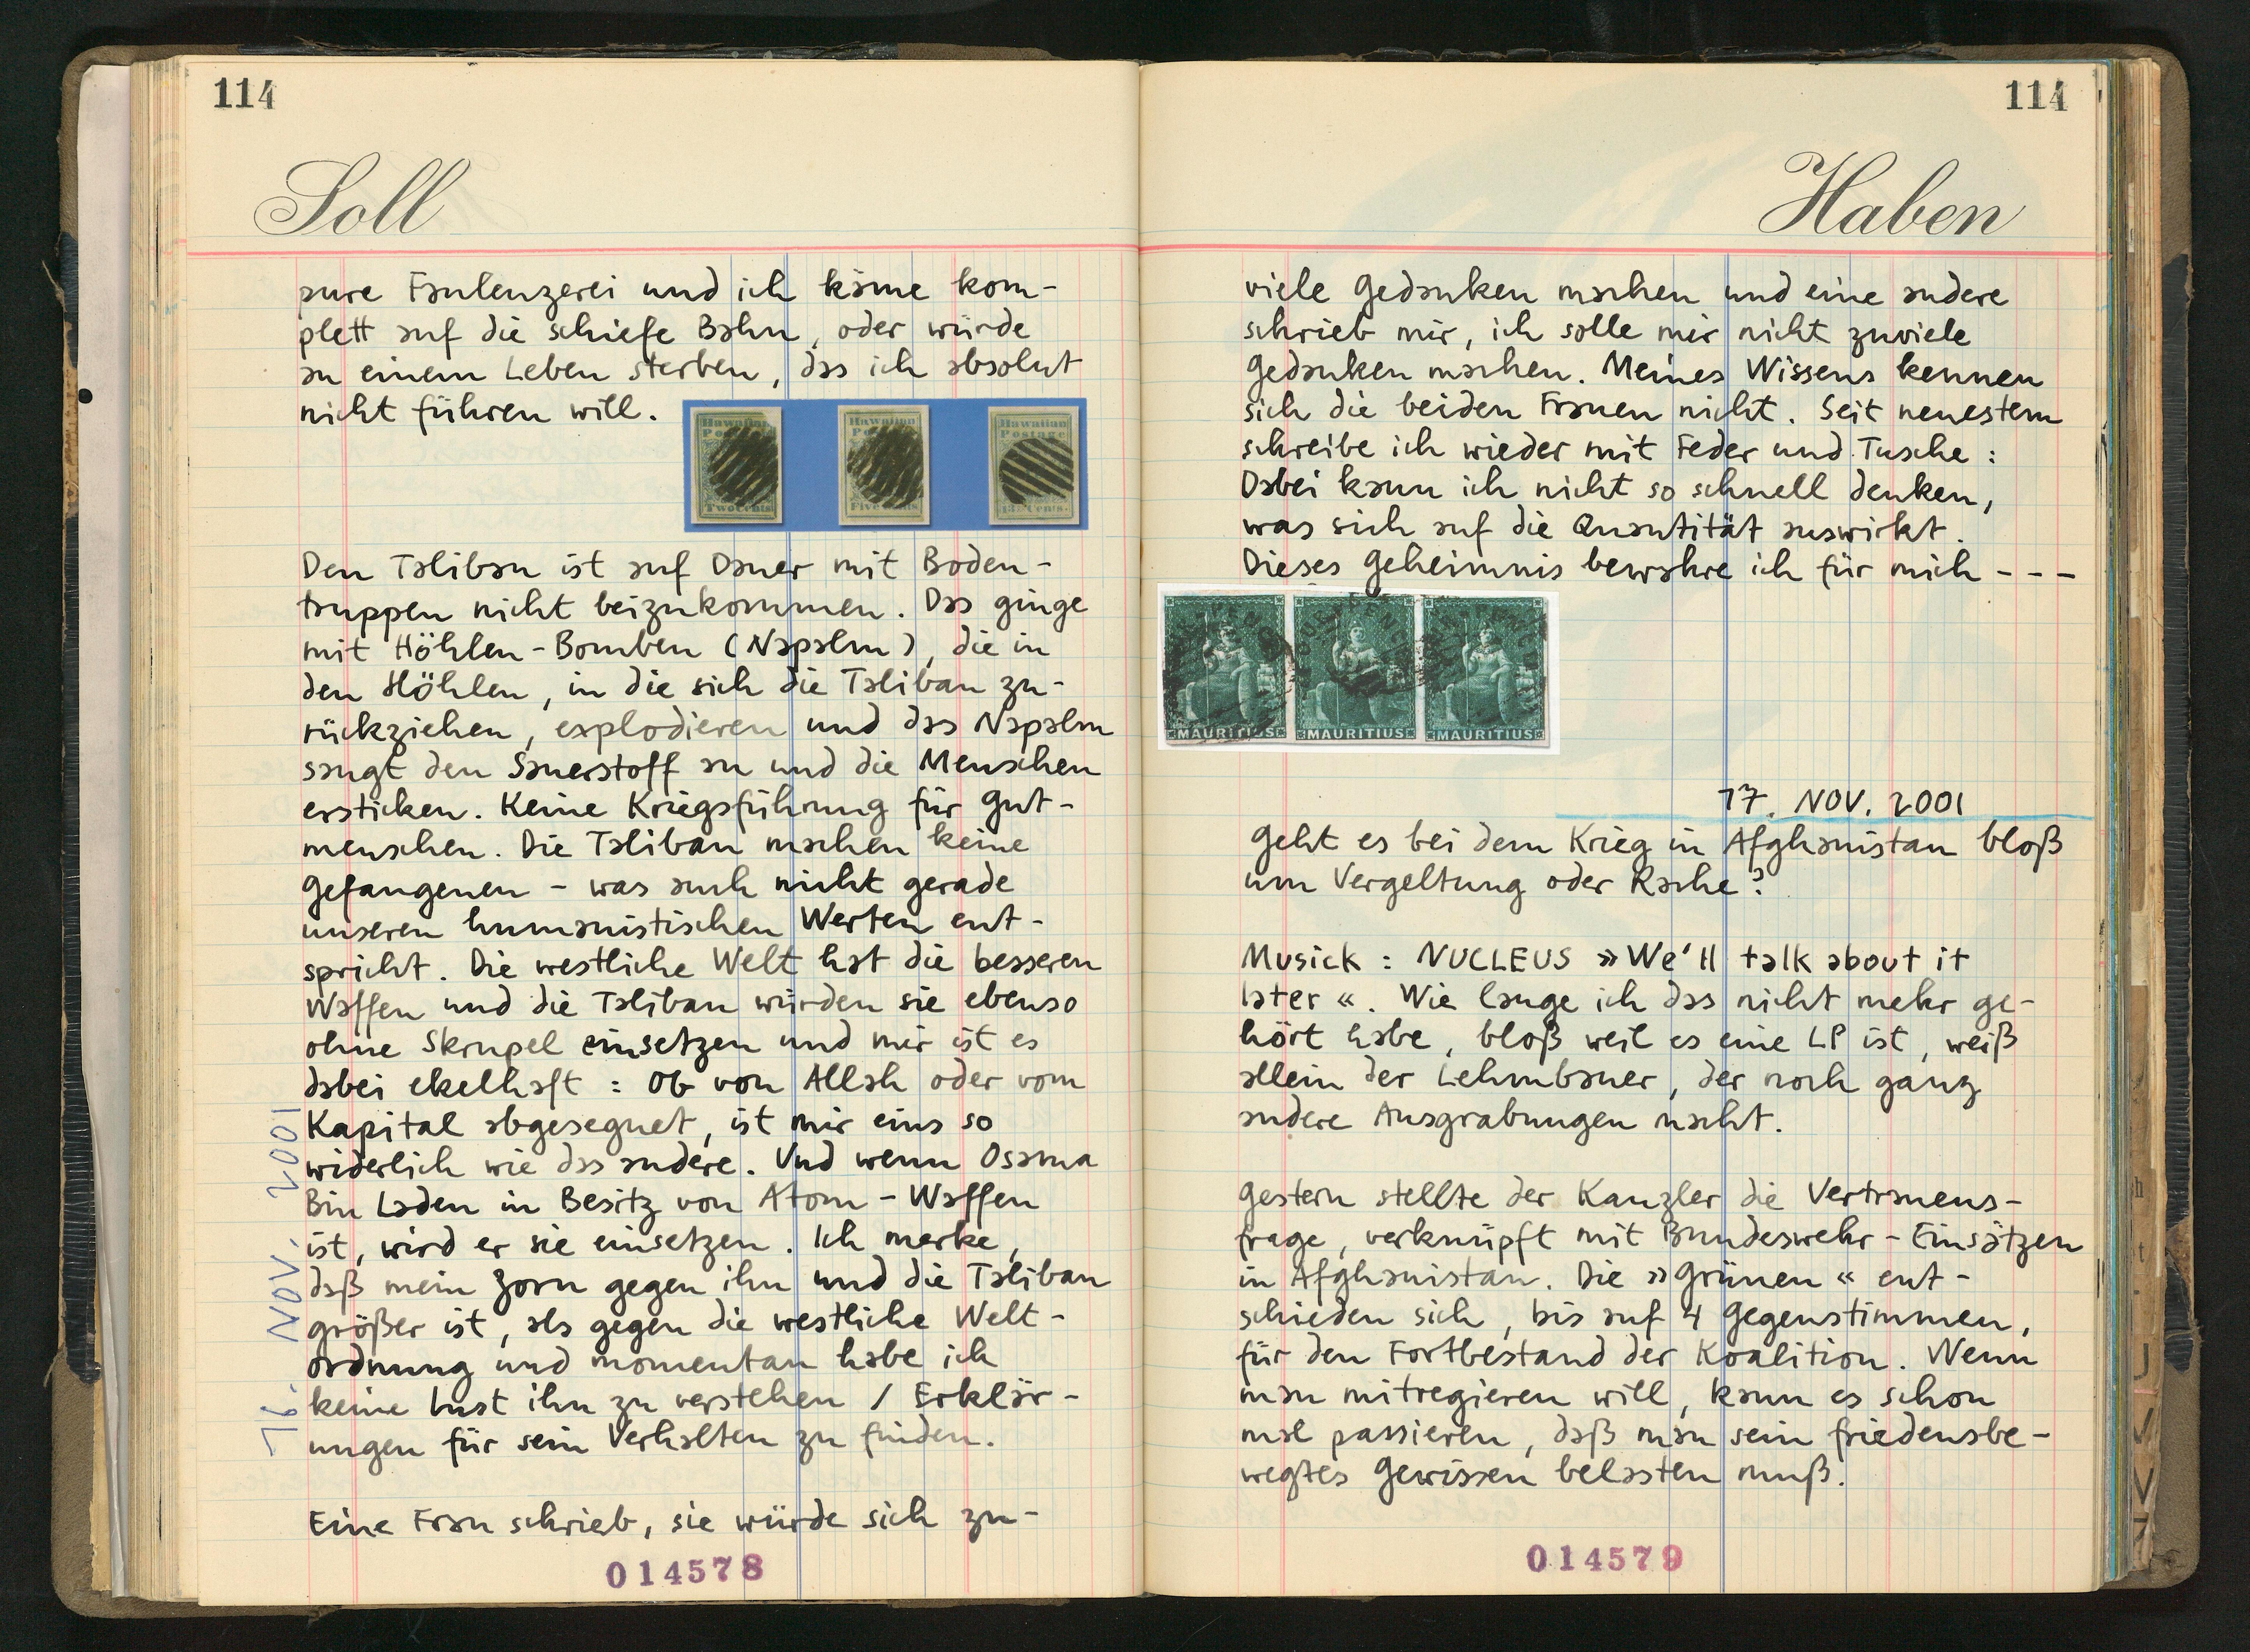 114
Soll
pure Faulenzerei und ich käme kom-
plett auf die schiefe Bahn, oder würde
an einem Leben sterben, das ich absolut
nicht führen will.
Hawaiian
Postage
Two Cents
Hawaiian
Five Cents
Hawaiian
Postage
13 Cents.
Den Taliban ist auf Dauer mit Boden-
truppen nicht beizukommen. Das ginge
mit Höhlen-Bomben (Napalm), die in
den Höhlen, in die sich die Taliban zu-
rückziehen, explodieren und das Napalm
saugt den Sauerstoff an und die Menschen
ersticken. Keine Kriegsführung für Gut-
menschen. Die Taliban machen keine
Gefangenen - was auch nicht gerade
unseren humanistischen Werten ent-
spricht. Die westliche Welt hat die besseren
Waffen und die Taliban würden sie ebenso
ohne Skrupel einsetzen und mir ist es
dabei ekelhaft: Ob von Allah oder vom
Kapital abgesegnet, ist mir eins so
widerlich wie das andere. Und wenn Osama
Bin Laden in Besitz von Atom-Waffen
ist, wird er sie einsetzen. Ich merke,
daß mein Zorn gegen ihn und die Taliban
größer ist, als gegen die westliche Welt-
ordnung und momentan habe ich
keine Lust ihn zu verstehen / Erklär-
ungen für sein Verhalten zu finden.
16. NOV. 2001
Eine Frau schrieb, sie würde sich zu-
014578
114
Haben
viele Gedanken machen und eine andere
schrieb mir, ich solle mir nicht zuviele
Gedanken machen. Meines Wissens kennen
sich die beiden Frauen nicht. Seit neuestem
schreibe ich wieder mit Feder und Tusche:
Dabei kann ich nicht so schnell denken,
was sich auf die Quantität auswirkt.
Dieses Geheimnis bewahre ich für mich - - -
MAURITIUS
MAURITIUS
MAURITIUS
17. NOV. 2001
Geht es bei dem Krieg in Afghanistan bloß
um Vergeltung oder Rache?
Musick: NUCLEUS »We'll talk about it
later«. Wie lange ich das nicht mehr ge-
hört habe, bloß weil es eine LP ist, weiß
allein der Lehmbauer, der noch ganz
andere Ausgrabungen macht.
Gestern stellte der Kanzler die Vertrauens-
frage, verknüpft mit Bundeswehr-Einsätzen
in Afghanistan. Die »Grünen« ent-
schieden sich, bis auf 4 Gegenstimmen,
für den Fortbestand der Koalition. Wenn
man mitregieren will, kann es schon
mal passieren, daß man sein friedensbe-
wegtes Gewissen belasten muß.
014579